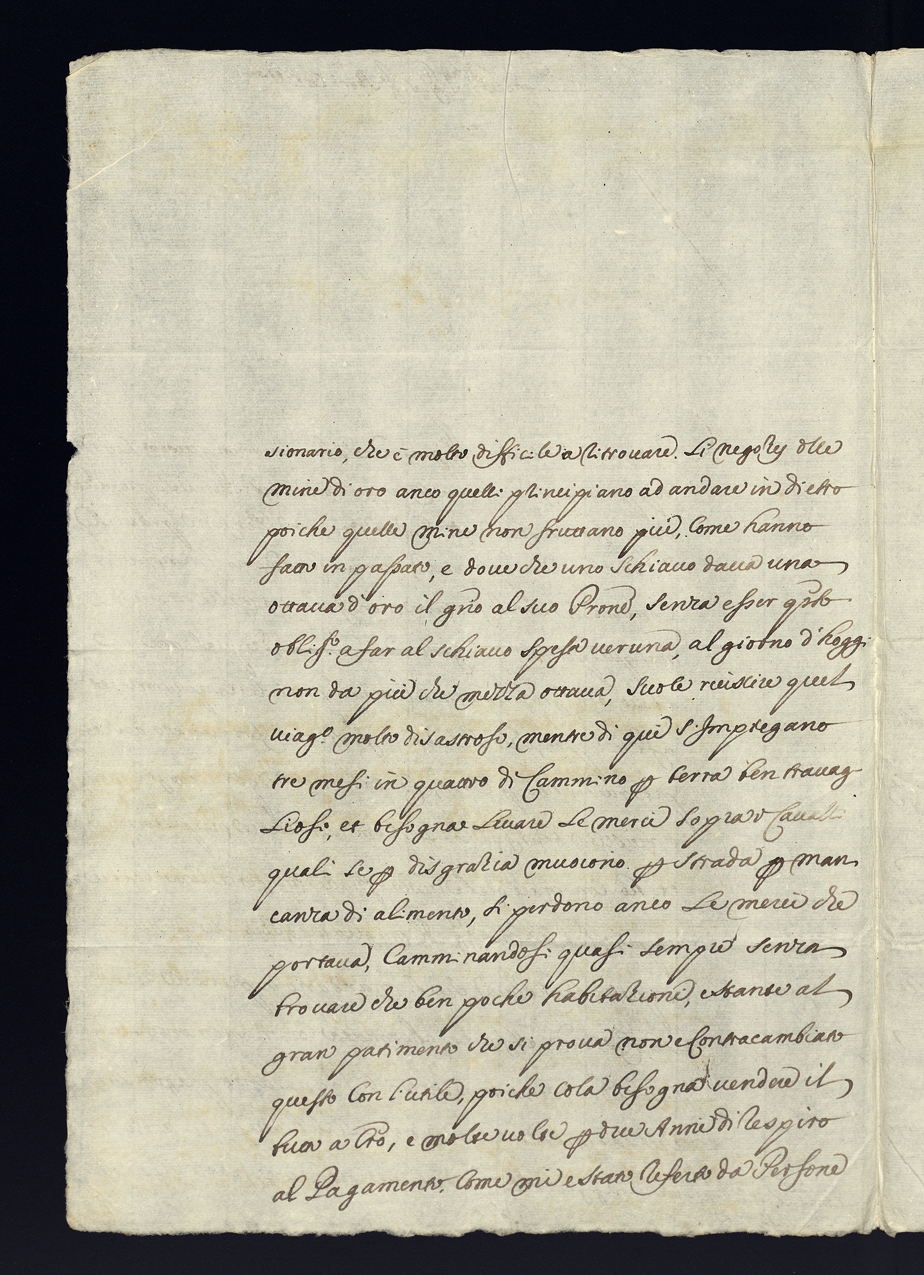 sionario, che è molto difficile a ritrovare. Li negotij dlle
mine di oro anco quelli principiano ad andare in dietro
poiche quelle mine non fruttano più, Come hanno
fatto in passato, e dove che uno schiavo dava una
ottava d'oro il gno al suo Prone, senza esser qsto
obligto. a far al schiavo spesa veruna, al giorno d'hoggi
non da più che mezza ottava, suole riuscire quel
viago. molto disastroso, mentre di qui s'Impiegano
tre mesi in quattro di Cammino p terra ben travag
liosi, et bisogna Livare Le merci sopra Cavalli
quali se p disgrazia muoiono p strada p man
canza di alimento, si perdono anco Le merci che
portava, Camminandosi quasi sempre senza
trovare che ben poche habitazioni, e stante al
gran patimento che si prova non e Contracambiato
questo Con l'utile, poiche cola bisogna vendere il
tutto a Cto, e molte volte p due Anni di respiro
al Pagamento. Come mi e stato referto da Persone